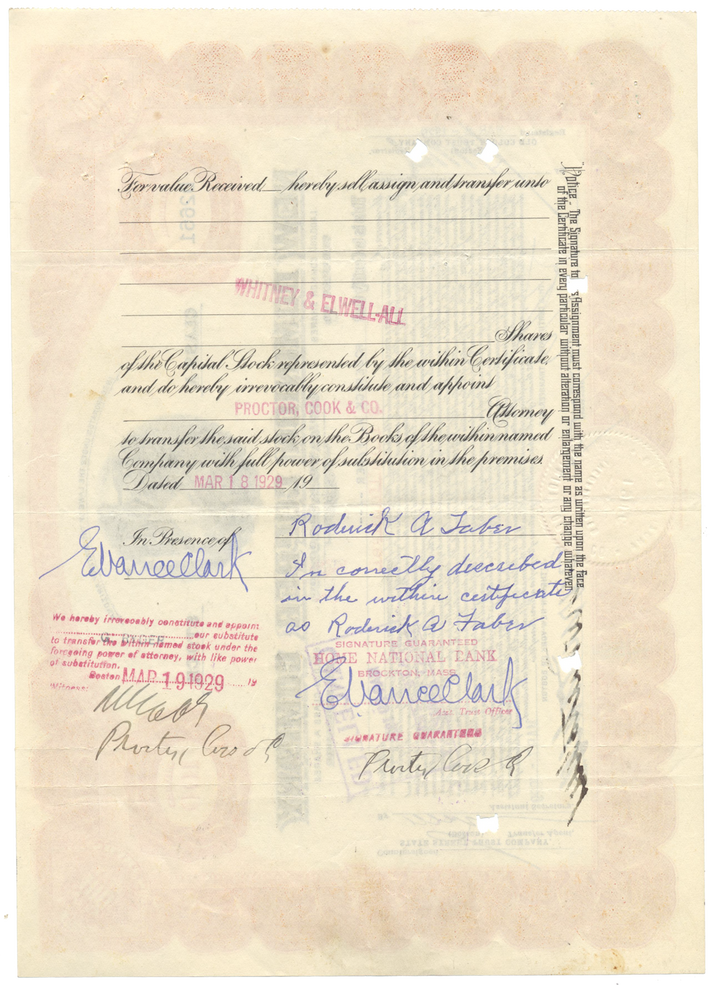 For value Received hereby sell, assign, and transfer unto
WHITNEY & ELWELL-ALL
Shares
of the Capital Stock represented by the within Certificate,
and do hereby irrevocably constitute and appoint
PROCTOR, COOK & CO.
Attorney
to transfer the said stock on the Books of the within named
Company with full power of substitution in the premises.
Dated MAR 18 1929 19
In Presence of
Roderick A Faber
E Vance Clark
I'm correctly described
in the within certificate
as Roderick A Faber
We hereby irrevocably constitute and appoint
our substitute
to transfer the within named stock under the
foregoing power of attorney, with like power
of substitution.
Boston MAR 19 1929 19
Witness:
Proctor, Cook & Co
SIGNATURE GUARANTEED
HOME NATIONAL BANK
BROCKTON, MASS.
E Vance Clark
Asst. Trust Officer
SIGNATURE GUARANTEED
Proctor, Cook & Co
Notice. The Signature to s Assignment must correspond with the name as written upon the face
of the Certificate in every particular without alteration or enlargement or any change whatever.